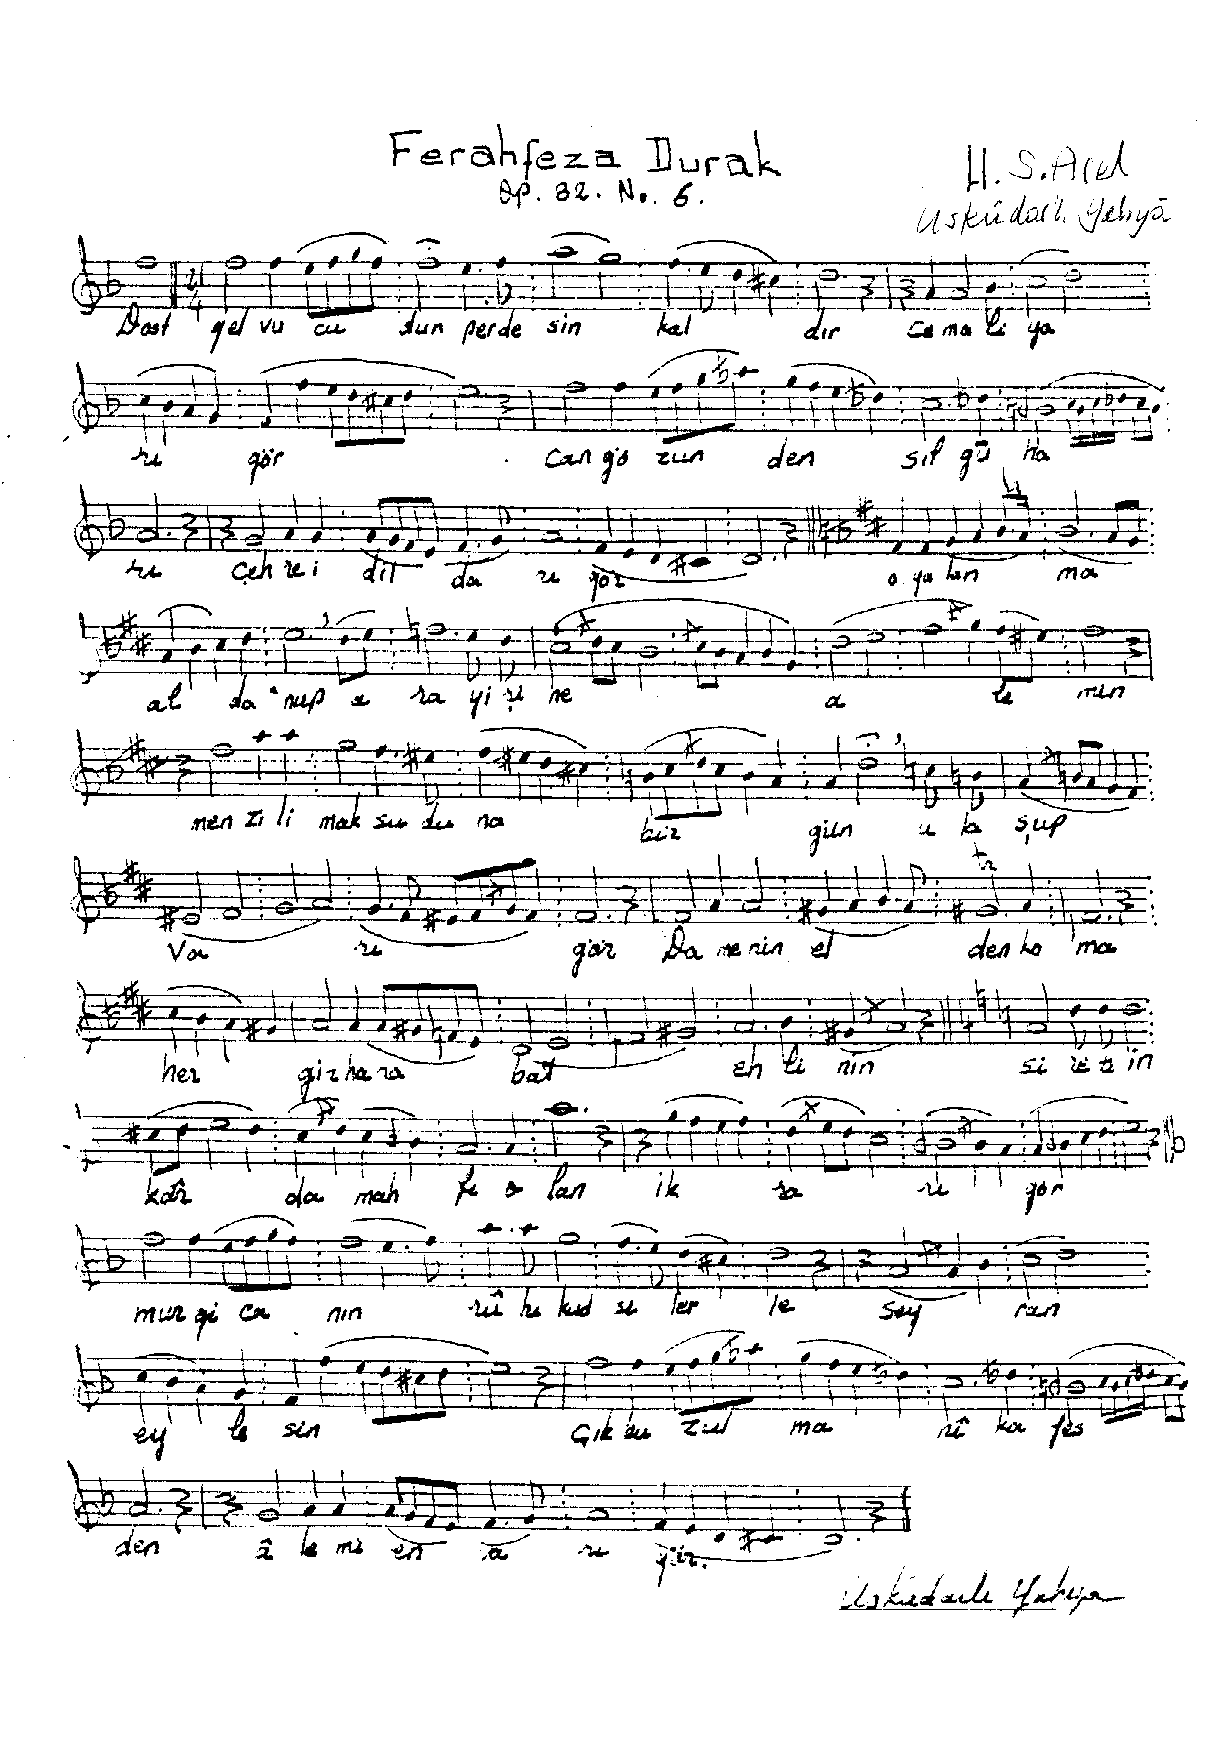 Ferahfeza Durak
Op. 32. No. 6.
H. S. Arel
Üsküdarlı Yahyâ
Dost gel vu cu dun perde sin kal dır ce ma li ya
ri gör can gö zun den sil gü ha
ri Çeh re i dil da ri gör o ya lan ma
al da nup a ra yi şi ne a le min
men zi li mak su du na bir gün u la şup
Va ri gör Da me nin el den ko ma
her giz ha ra bat eh li nin si re ti in
kâr da mah fi o lan ik ra ri gör
mur gi ca nın rû hi kud si ler le sey ran
ey le sin Çık bu zul ma nî ka fes
den â le mi en va ri gör.
Üsküdarlı Yahya